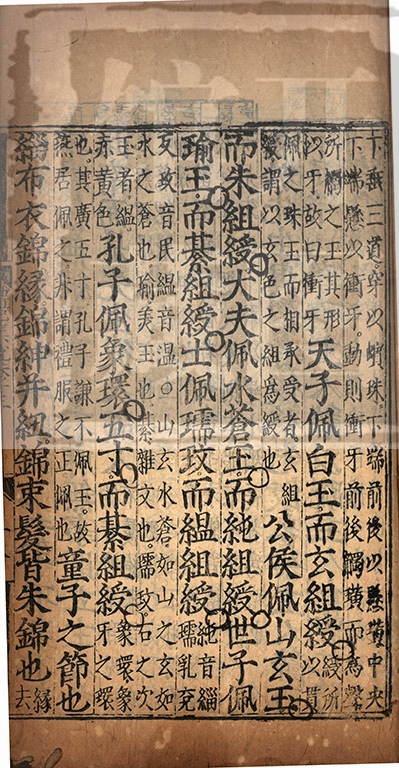 下垂三道穿以蠙珠下端前後以懸璜中央
下端懸以衝牙動則衝牙前後觸璜而爲聲
所觸之玉其形
似牙故曰衝牙
天子佩白玉而玄組綬
綬所
以貫
佩之珠玉而相承受者玄組
綬謂以玄色之組爲綬也
公侯佩山玄玉
而朱組綬大夫佩水蒼玉而純組綬世子佩
瑜玉而綦組綬士佩瓀玟而縕組綬
純音緇
瓀乳兗
反玟音民縕音溫○山玄水蒼如山之玄如
水之蒼也瑜美玉也綦雜文也瓀玟石之次
玉者縕
赤黃色
孔子佩象環五寸而綦組綬
象環象
牙之環
也其廣五寸孔子謙不佩玉故
燕居佩之非謂禮服之正佩也
童子之節也
緇布衣錦緣錦紳并紐錦束髮皆朱錦也
緣
去